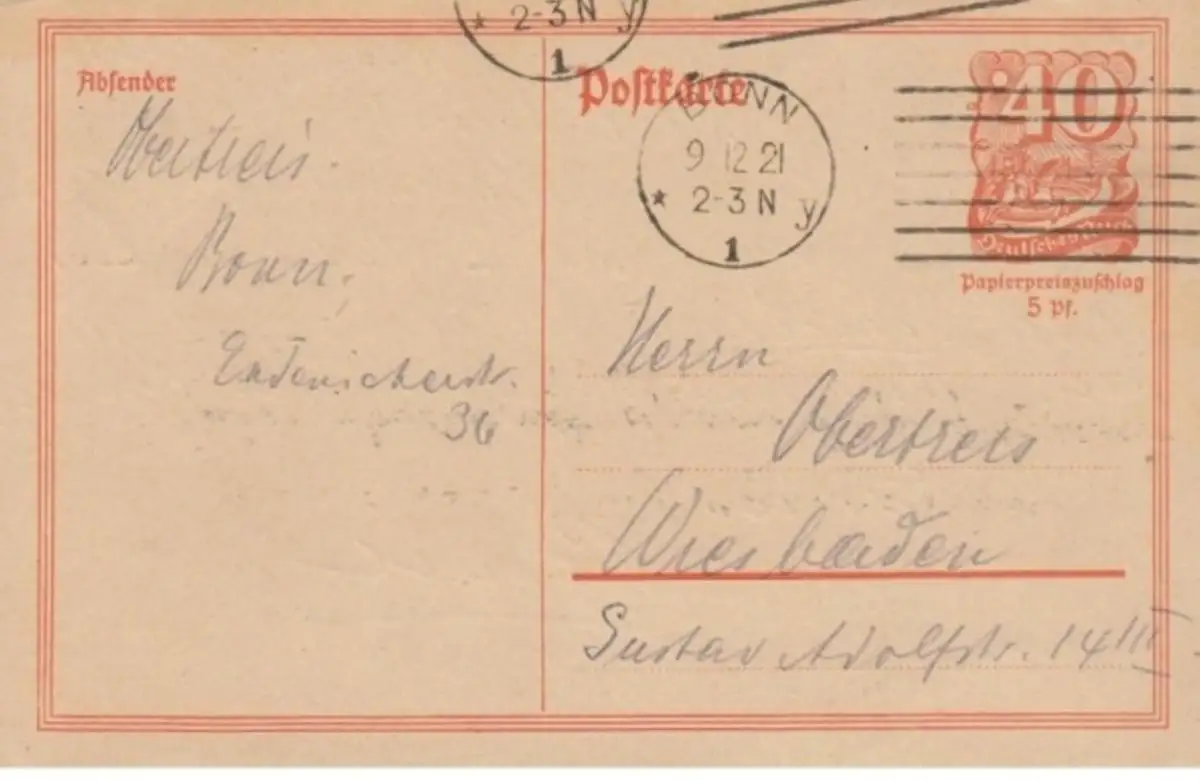 2-3 N y
1
Absender
Obertreis.
Bonn,
Endenicherstr.
36
Postkarte
BONN
9 12 21
2-3 N y
1
40
Deutsches Reich
Papierpreiszuschlag
5 Pf.
Herrn
Obertreis
Wiesbaden
Gustav Adolfstr. 14 III